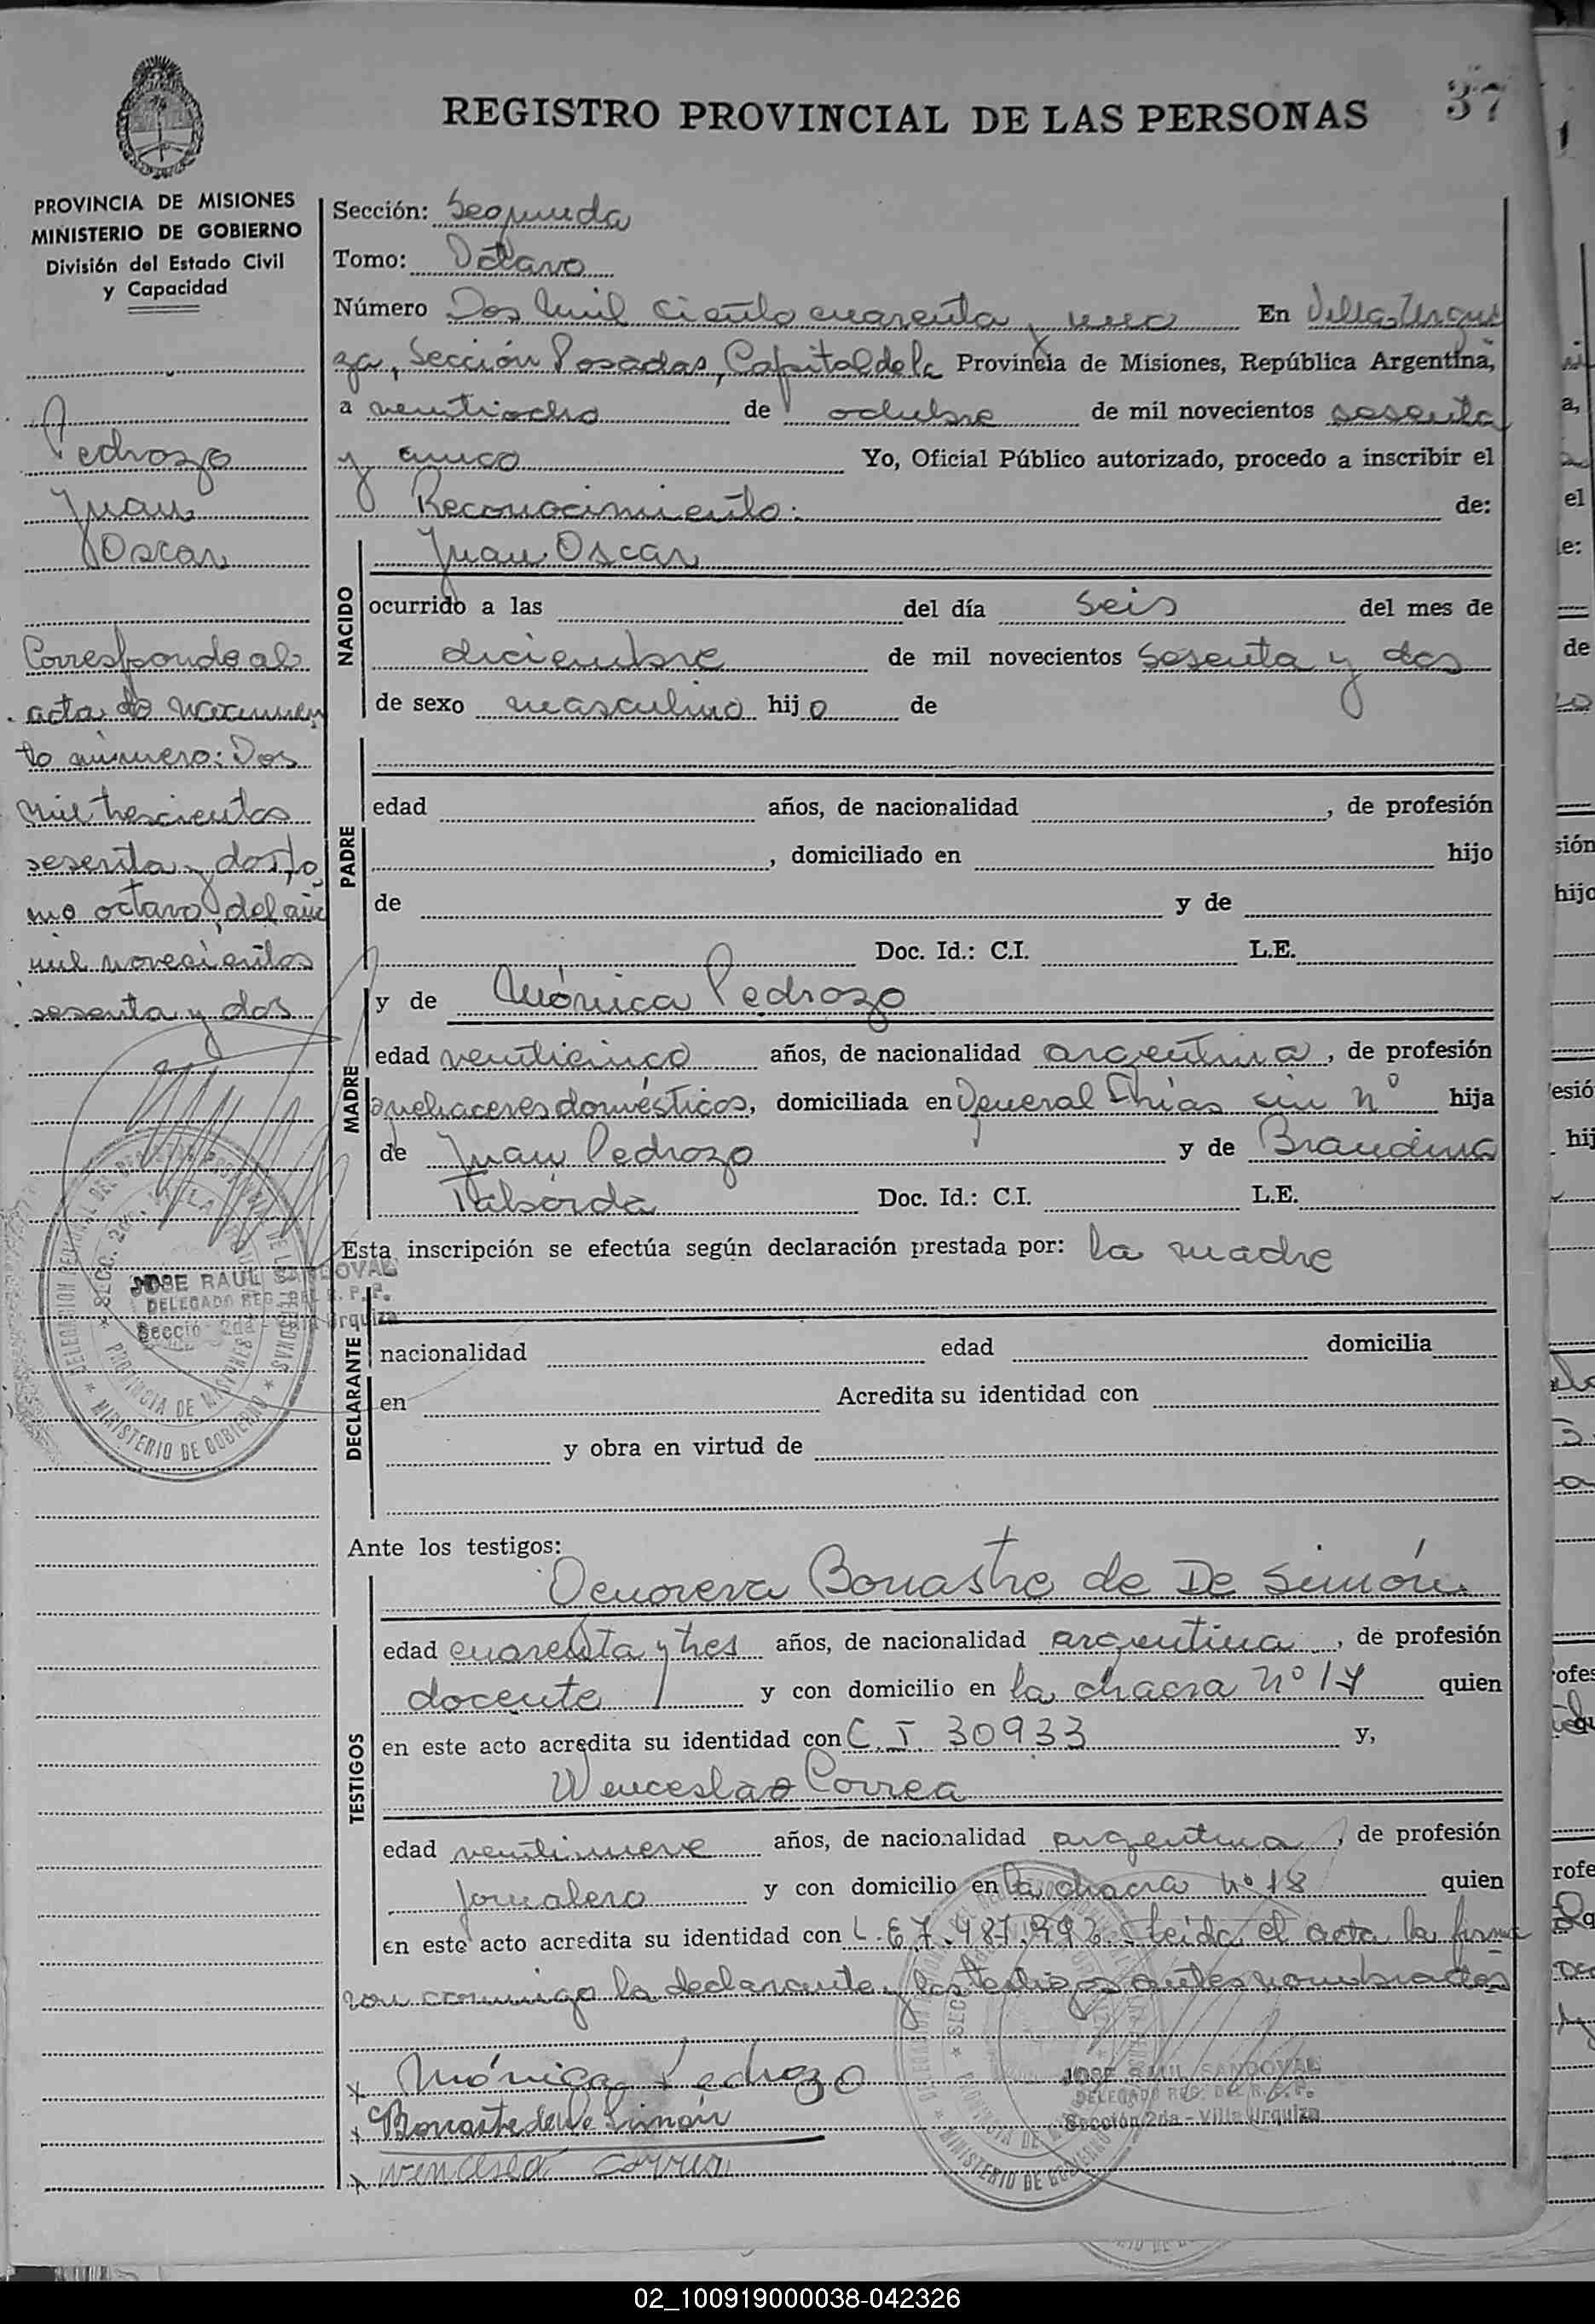 REGISTRO PROVINCIAL DE LAS PERSONAS
37
PROVINCIA DE MISIONES
MINISTERIO DE GOBIERNO
División del Estado Civil
y Capacidad
Pedrozo
Juan
Oscar
Corresponde al
acta de nacimien
to número: Dos
mil trescientos
sesenta y dos, to
mo octavo, del año
mil novecientos
sesenta y dos
JOSE RAUL SANDOVAL
DELEGADO REG. DEL R. P. P.
Sección 2da - Villa Urquiza
MINISTERIO DE GOBIERNO
PROVINCIA DE MISIONES
Sección: Segunda
Tomo: Octavo
Número Dos mil ciento cuarenta y uno En Villa Urqui
za, Sección Posadas, Capital de la Provincia de Misiones, República Argentina,
a veintiocho de octubre de mil novecientos sesenta
y cinco Yo, Oficial Público autorizado, procedo a inscribir el
Reconocimiento: de:
NACIDO
Juan Oscar
ocurrido a las del día seis del mes de
diciembre de mil novecientos sesenta y dos
de sexo masculino hijo de
PADRE
edad años, de nacionalidad , de profesión
, domiciliado en hijo
de y de
Doc. Id.: C.I. L.E.
MADRE
y de Mónica Pedrozo
edad veinticinco años, de nacionalidad argentina, de profesión
quehaceres domésticos, domiciliada en General sin nº hija
de Juan Pedrozo y de
Taborda Doc. Id.: C.I. L.E.
Esta inscripción se efectúa según declaración prestada por: la madre
DECLARANTE
nacionalidad edad domicilia
en Acredita su identidad con
y obra en virtud de
Ante los testigos:
TESTIGOS
Bonastre de De Simón
edad cuarenta y tres años, de nacionalidad argentina, de profesión
docente y con domicilio en la chacra nº 17 quien
en este acto acredita su identidad con C. I. 30933 y,
Wenceslao Correa
edad veintinueve años, de nacionalidad argentina, de profesión
jornalero y con domicilio en la chacra nº 18 quien
en este acto acredita su identidad con L.E 7.487.992. Leida el acta la firma
ron conmigo la declarante y los testigos antes nombrados
x Mónica Pedrozo
x Bonastre de De Simón
x Correa
JOSE RAUL SANDOVAL
DELEGADO REG. DEL R. P. P.
Sección 2da - Villa Urquiza
MINISTERIO DE GOBIERNO
02_100919000038-042326